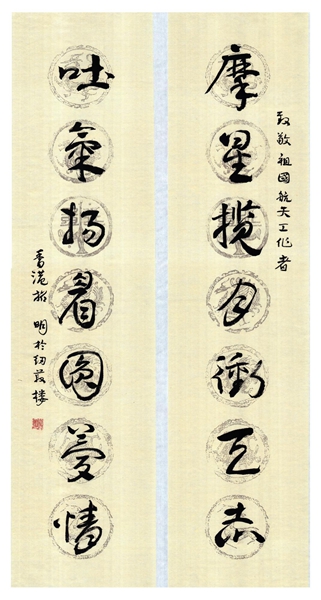 致敬祖國航天工作者
摩星揽月衝天志
吐氣揚眉圓夢情
香港 明於 樓